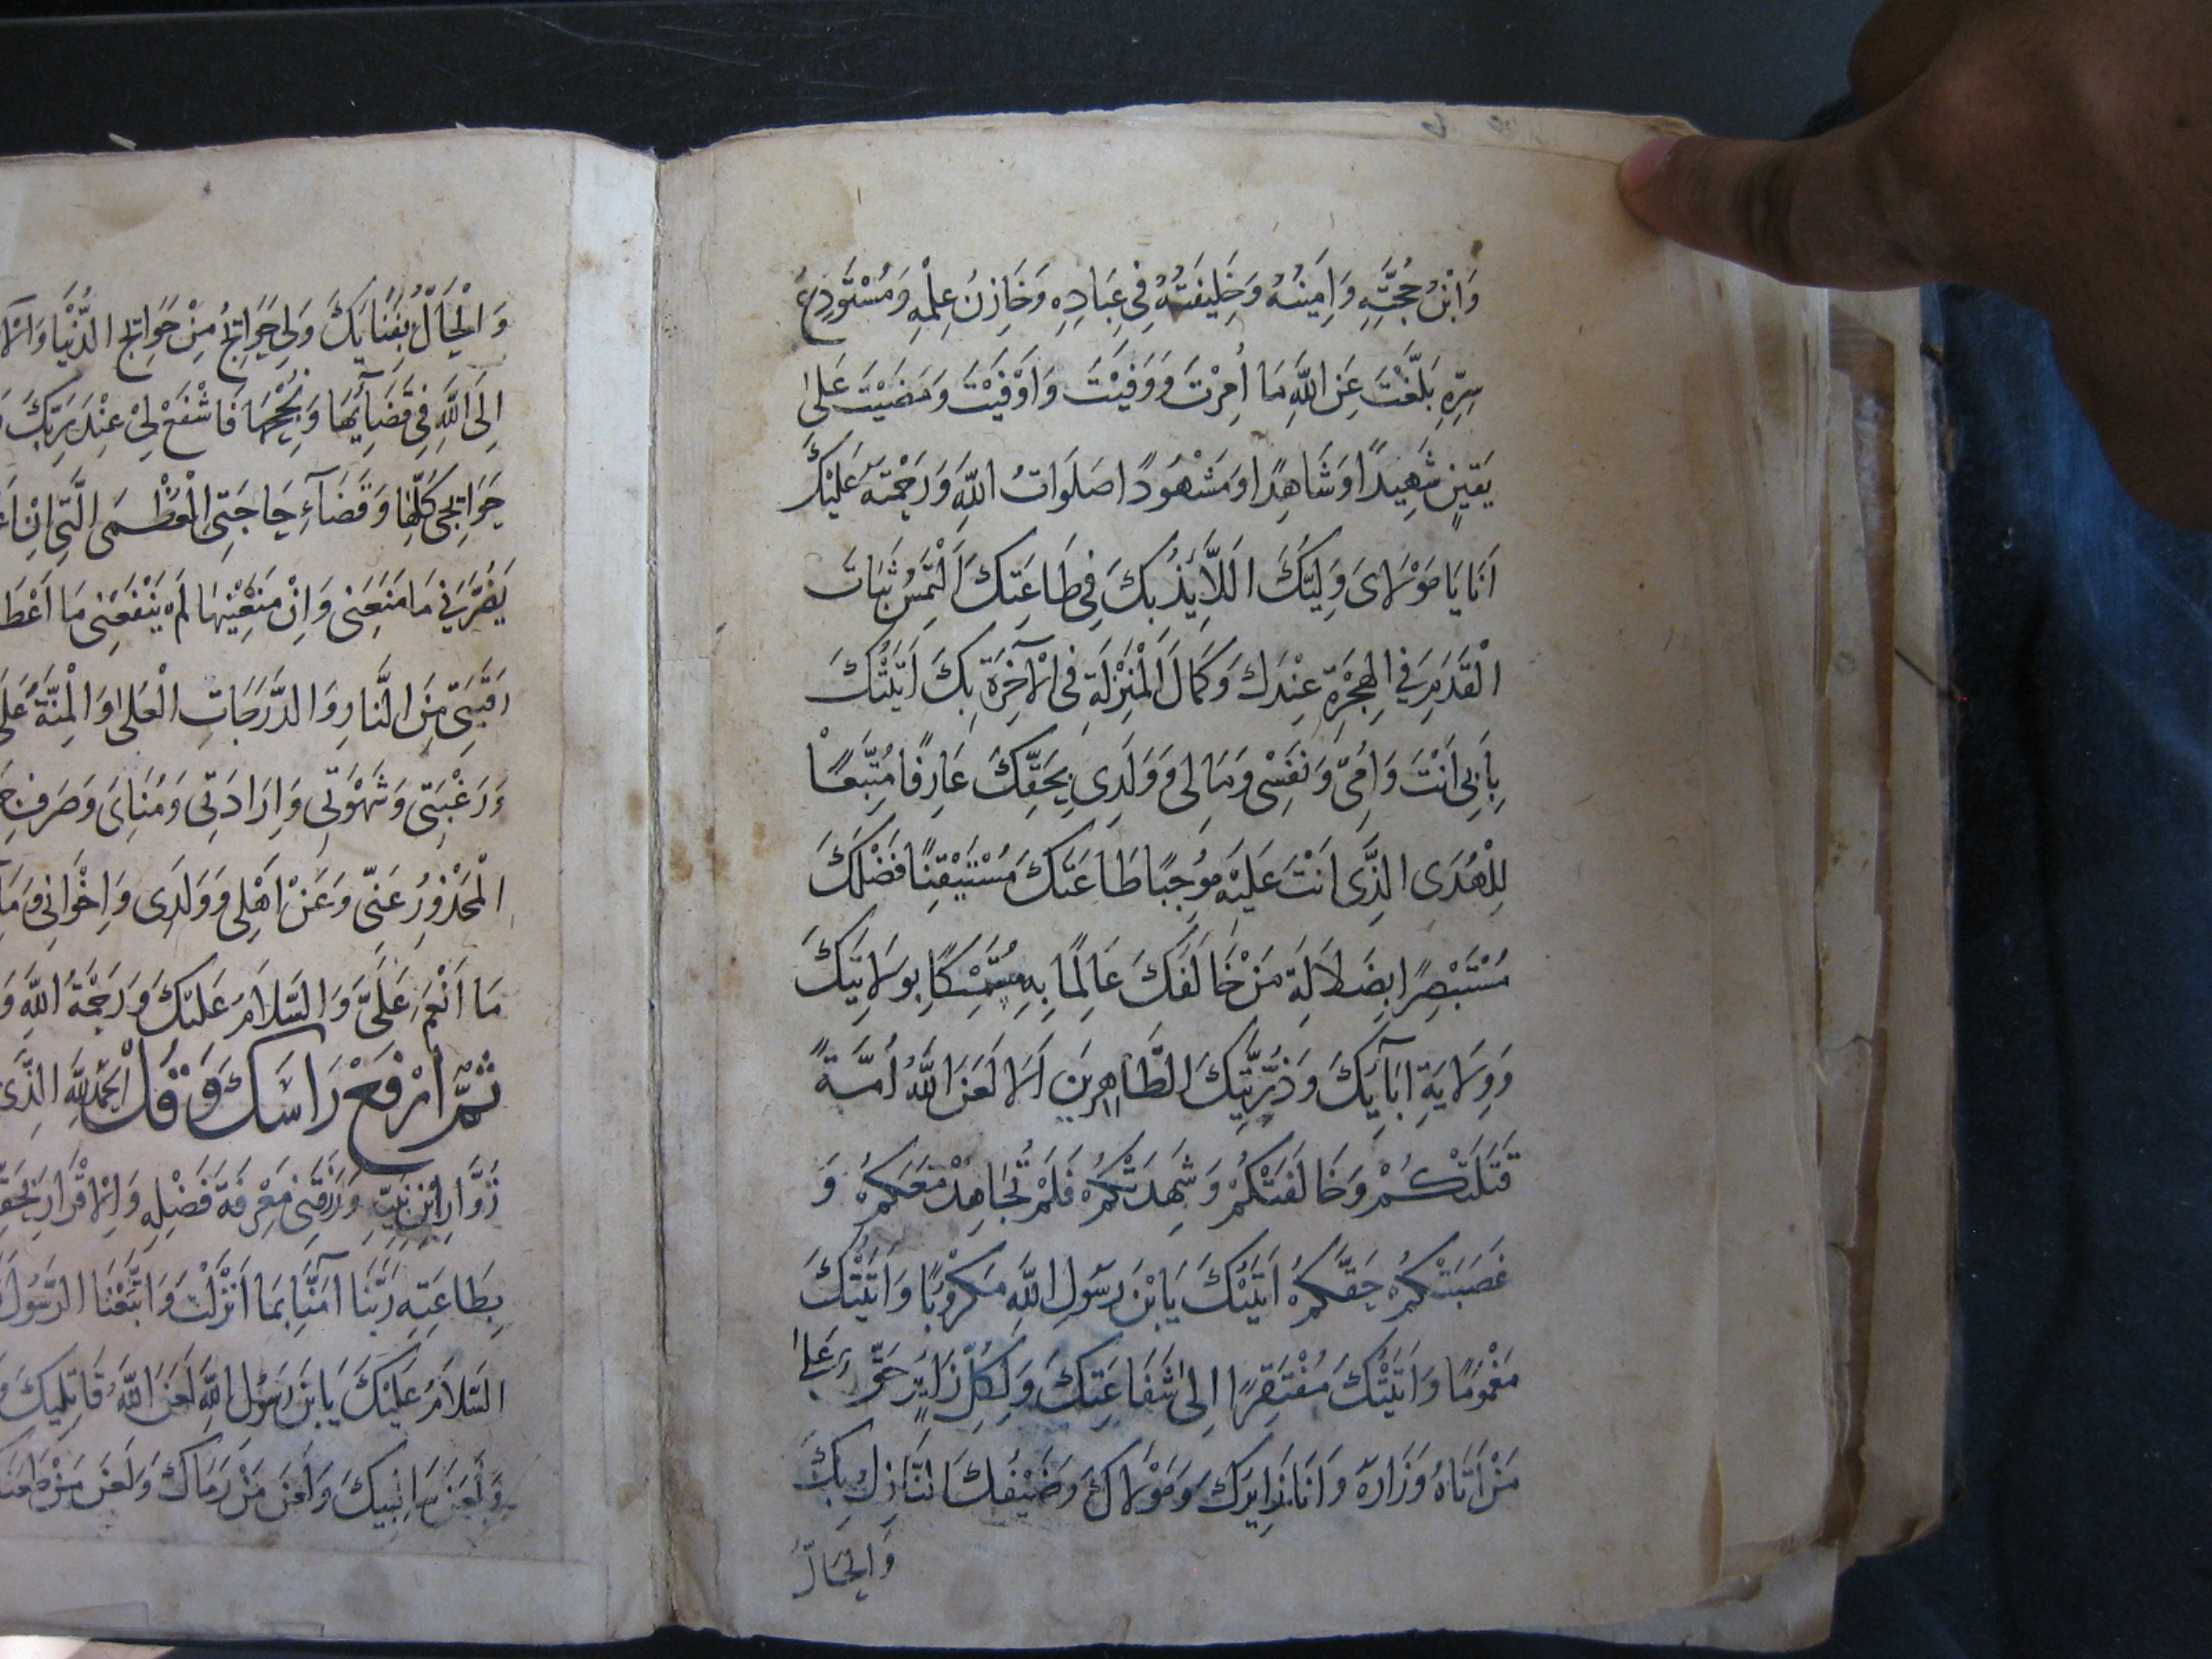 وَابْنُ حُجَّتِهِ وَاَمِينُهُ وَخَلِيفَتُهُ فِي عِبَادِهِ وَخَازِنُ عِلْمِهِ وَمُسْتَوْدِعُ
سِرِّهِ بَلَّغْتَ عَنِ اللَّهِ مَا اُمِرْتَ وَوَفَيْتَ وَاَوْفَيْتَ وَمَضَيْتَ عَلىٰ
يَقِينٍ شَهِيدًا وَشَاهِدًا وَمَشْهُودًا صَلَوَاتُ اللَّهِ وَرَحْمَتُهُ عَلَيْكَ
اَنَا يَا مَوْلَاىَ وَلِيُّكَ اللَّائِذُ بِكَ فِي طَاعَتِكَ اَلْتَمِسُ ثَبَاتَ
الْقَدَمِ فِي الْهِجْرَةِ عِنْدَكَ وَكَمَالَ الْمَنْزِلَةِ فِي الْآخِرَةِ بِكَ اَتَيْتُكَ
بِاَبِي اَنْتَ وَاُمِّي وَنَفْسِي وَمَالِي وَوَلَدِي بِحَقِّكَ عَارِفًا مُتَّبِعًا
لِلْهُدَى الَّذِي اَنْتَ عَلَيْهِ مُوجِبًا طَاعَتَكَ مُسْتَيْقِنًا فَضْلَكَ
مُسْتَبْصِرًا بِضَلَالَةِ مَنْ خَالَفَكَ عَالِمًا بِهِ مُتَمَسِّكًا بِوَلَايَتِكَ
وَوِلَايَةِ ابَآئِكَ وَذُرِّيَّتِكَ الطَّاهِرِينَ اَلَا لَعَنَ اللَّهُ اُمَّةً
قَتَلَتْكُمْ وَخَالَفَتْكُمْ وَشَهِدَتْكُمْ فَلَمْ تُجَاهِدْ مَعَكُمْ وَ
غَصَبَتْكُمْ حَقَّكُمْ اَتَيْتُكَ يَا بْنَ رَسُولِ اللَّهِ مَكْرُوبًا وَاَتَيْتُكَ
مَغْمُومًا وَاَتَيْتُكَ مُفْتَقِرًا اِلىٰ شَفَاعَتِكَ وَلِكُلِّ زَايِرٍ حَقٌّ عَلىٰ
مَنْ اَتَاهُ وَزَارَهُ وَاَنَا زَايِرُكَ وَمَوْلَاكَ وَضَيْفُكَ النَّازِلُ بِكَ
وَالْحَالُّ
وَالْحَآلُّ بِفِنَايِكَ وَلِي حَوَايِجُ مِنْ حَوَايِجِ الدُّنْيَا
اِلَى اللَّهِ فِي قَضَآئِهَا وَنُجْحِهَا فَاشْفَعْ لِي عِنْدَ رَبِّكَ
حَوَايِجِي كُلِّهَا وَقَضَآءِ حَاجَتِيَ الْعُظْمَى الَّتِي اِنْ
يَضُرَّنِي مَا مَنَعَنِي وَاِنْ مَنَعَنِيهَا لَمْ يَنْفَعْنِي مَا
رَقَبَتِي مِنَ النَّارِ وَالدَّرَجَاتِ الْعُلىٰ وَالْمِنَّةِ
وَرَغْبَتِي وَشَهْوَتِي وَاِرَادَتِي وَمُنَاىَ وَصَرْفِ
الْمَحْذُورِ عَنِّي وَعَنْ اَهْلِي وَوَلَدِي وَاِخْوَانِي
مَا اَنْعَمَ عَلَيَّ وَالسَّلَامُ عَلَيْكَ وَرَحْمَةُ اللَّهِ
ثُمَّ ارْفَعْ رَاسَكَ وَقُلْ اَلْحَمْدُ لِلَّهِ الَّذِي
زُوَّارِ ابْنِ نَبِيِّهِ وَرَزَقَنِي مَعْرِفَةَ فَضْلِهِ وَالْاِقْرَارَ
بِطَاعَتِهِ رَبَّنَا آمَنَّا بِمَا اَنْزَلْتَ وَاتَّبَعْنَا الرَّسُولَ
السَّلَامُ عَلَيْكَ يَا بْنَ رَسُولِ اللَّهِ لَعَنَ اللَّهُ قَاتِلِيكَ
وَلَعَنَ سَالِبِيكَ وَلَعَنَ مَنْ رَمَاكَ وَلَعَنَ مَنْ